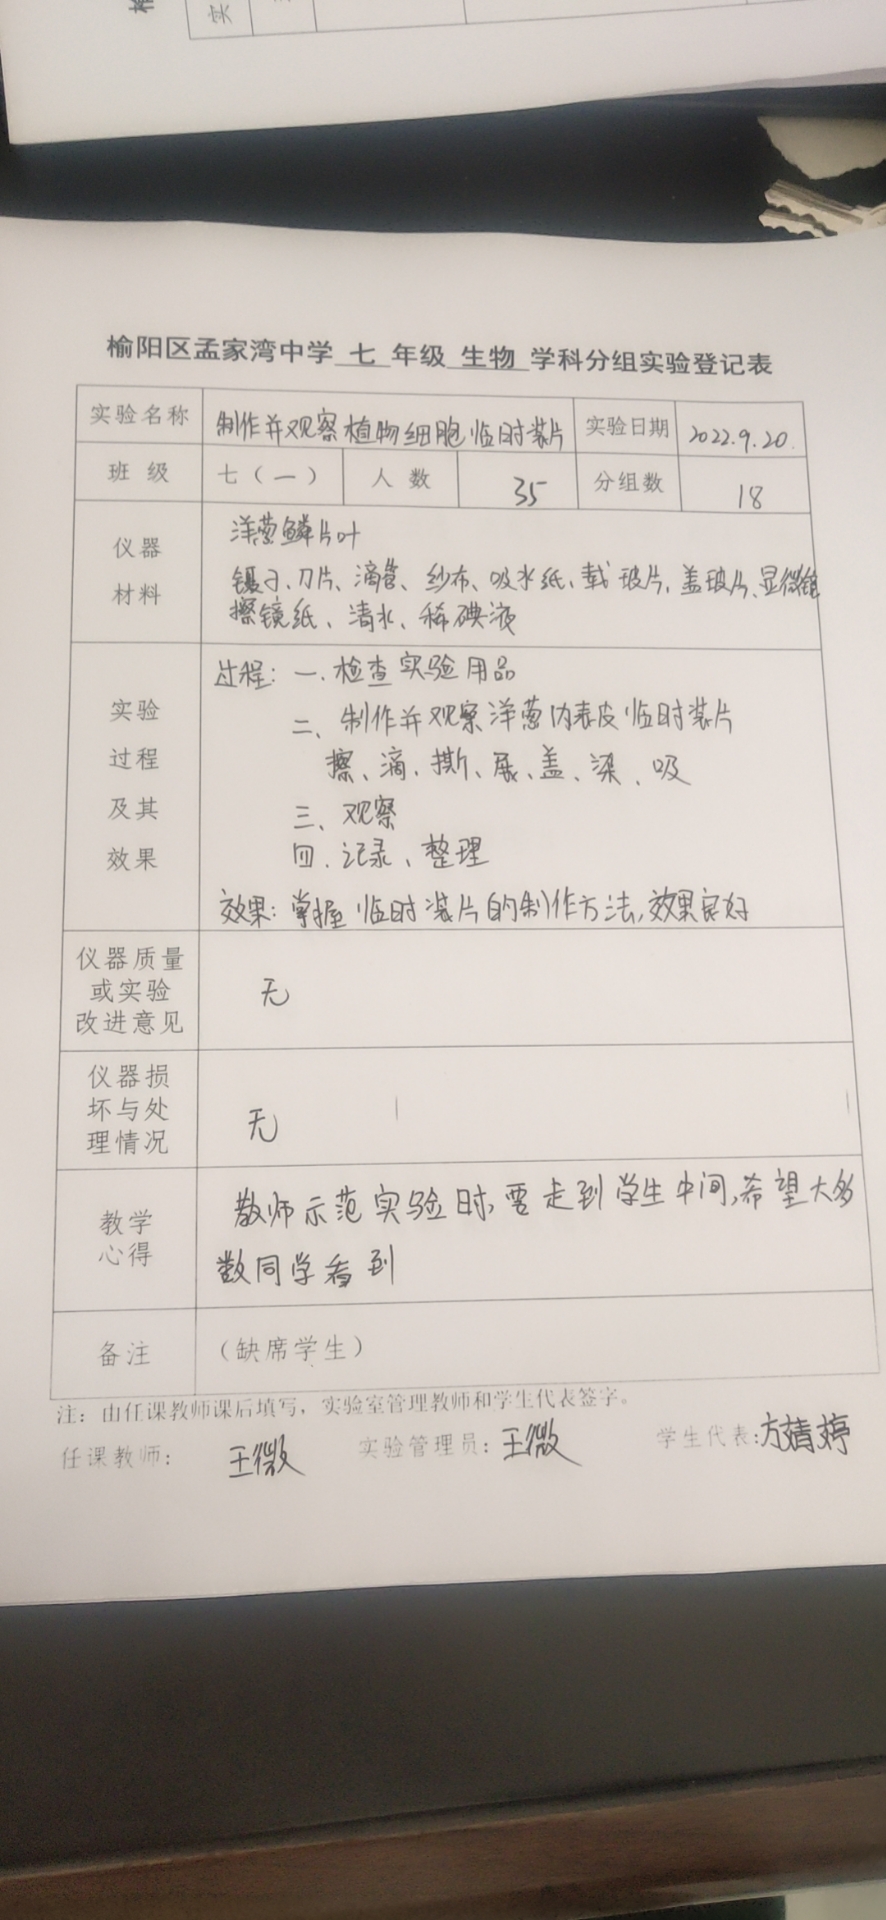 榆阳区孟家湾中学 七 年级 生物 学科分组实验登记表
实验名称 制作并观察植物细胞临时装片 实验日期 2022.9.20.
班 级 七（一） 人 数 35 分组数 18
仪器
材料
洋葱鳞片叶
镊子、刀片、滴管、纱布、吸水纸、载玻片、盖玻片、显微镜
擦镜纸、清水、稀碘液
实验
过程
及其
效果
过程：一.检查实验用品
二、制作并观察洋葱内表皮临时装片
擦、滴、撕、展、盖、染、吸
三、观察
四.记录、整理
效果：掌握临时装片的制作方法,效果良好
仪器质量
或实验
改进意见
无
仪器损
坏与处
理情况
无
教学
心得
教师示范实验时,要走到学生中间,希望大多
数同学看到
备注 （缺席学生）
注：由任课教师课后填写，实验室管理教师和学生代表签字。
任课教师： 王微 实验管理员：王微 学生代表：方婧婷